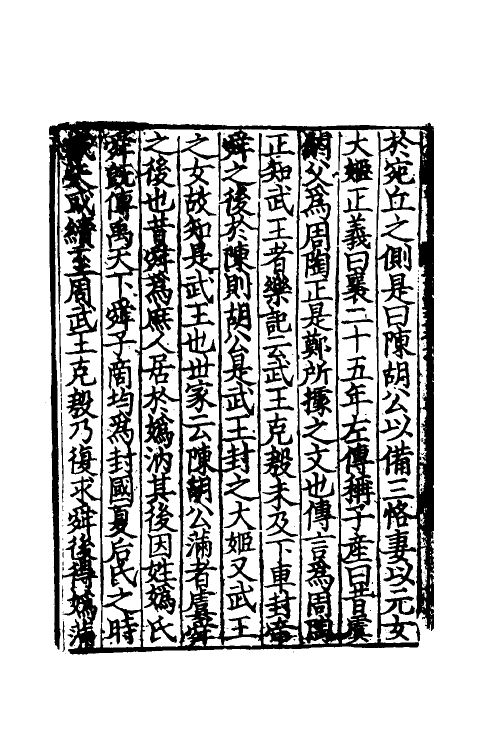 於宛丘之側是曰陳胡公以備三恪妻以元女
大姬正義曰襄二十五年左傳稱子產曰昔虞
閼父爲周陶正是鄭所據之文也傳言爲周陶
正知武王者樂記云武王克殷未及下車封帝
舜之後於陳則胡公是武王封之大姬又武王
之女故知是武王也世家云陳胡公滿者虞舜
之後也昔舜爲庶人居於嬀汭其後因姓嬀氏
舜既傳禹天下舜子商均爲封國夏后氏之時
或失或續至周武王克殷乃復求舜後得嬀滿